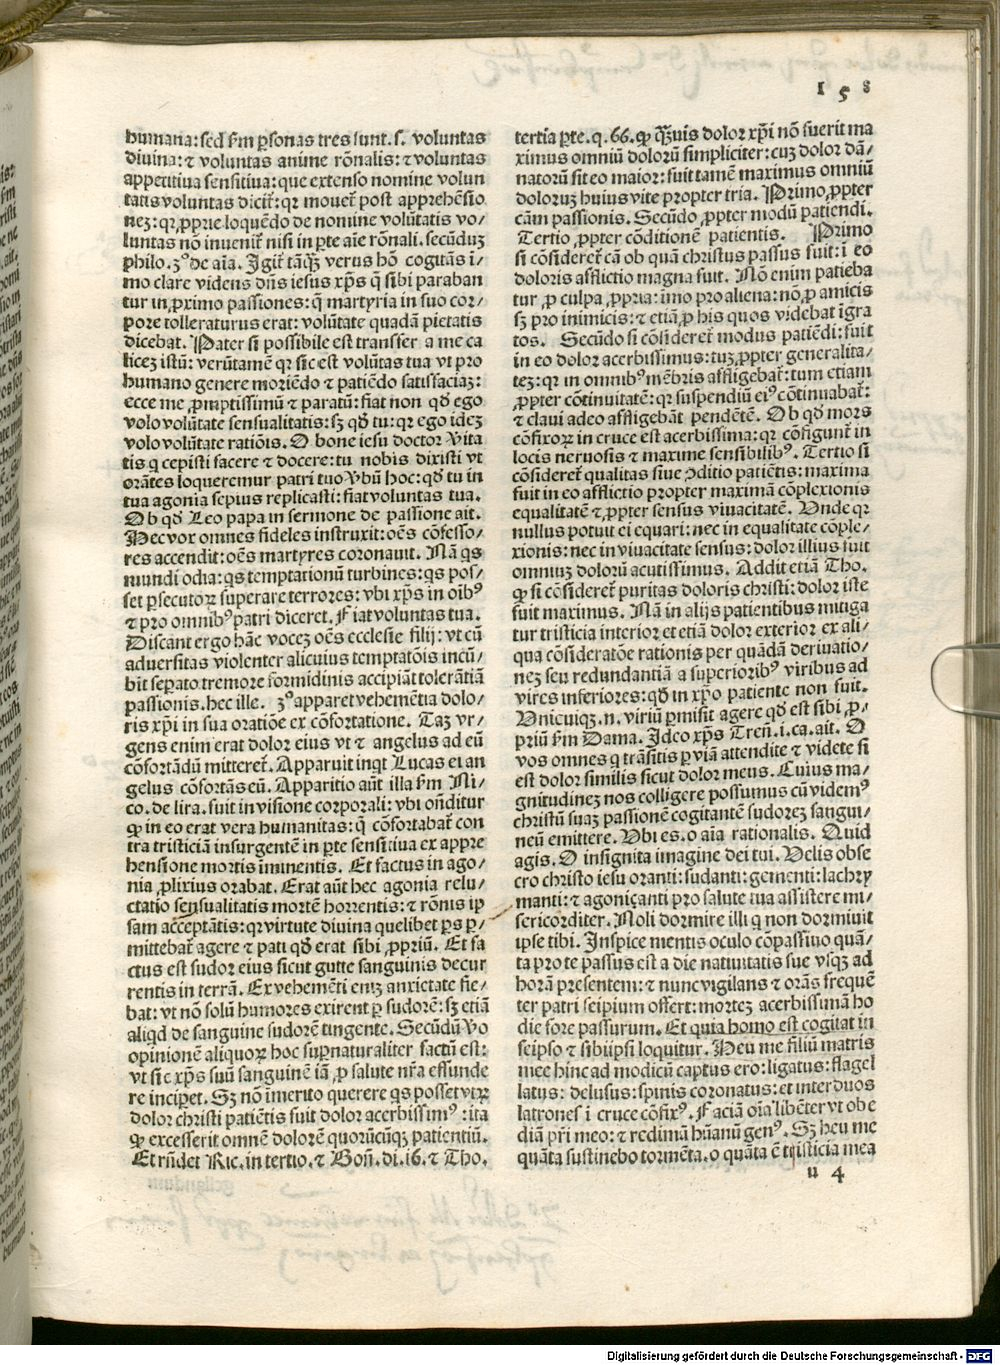 158
humana:sed ẜm ꝑsonas tres sunt.ſ. voluntas
diuina:⁊ voluntas anime rõnalis:⁊ voluntas
appetitiua sensitiua:que extenso nomine volun
tatis voluntas diciť:qꝛ mouet᷑ post apprehẽsio
neꝫ:qꝛ ꝓprie loquẽdo de nomine volũtatis vo/
luntas nõ inuenit᷑ nisi in ꝑte aĩe rõnali.secũduꝫ
philo.3ᵒ de aĩa. Igit᷑ tãqꝫ̃ verus hõ cogitãs i/
mo clare videns dñs iesus xp̃s q̃ sibi paraban
tur in ꝓximo passiones:q̃ martyria in suo coꝛ/
poꝛe tolleraturus erat:volũtate quadã pietatis
dicebat. Pater si possibile est transfer a me ca
liceꝫ istũ: verũtamẽ qꝛ sic est volũtas tua vt pro
humano genere moꝛiẽdo ⁊ patiẽdo satisfaciaꝫ:
ecce me ꝓmptissimũ ⁊ paratũ: fiat non qđ ego
volo volũtate sensualitatis:sꝫ qđ tu:qꝛ ego ideꝫ
volo volũtate ratiõis. O bone iesu doctoꝛ vita
tis q cepisti facere ⁊ docere:tu nobis dixisti vt
oꝛãtes loqueremur patri tuo vɓũ hoc:qđ tu in
tua agonia sepius replicasti:fiat voluntas tua.
Ob qđ Leo papa in sermone de passione ait.
Hec vox omnes fideles instruxit:oẽs cõfesso/
res accendit:oẽs martyres coꝛonauit. Nã q̇s
mundi odia:q̇s temptationũ turbines:q̇s pos/
set ꝑsecutoꝝ superare terroꝛes:vbi xp̃s in oĩbꝰ
⁊ pro omnibꝰ patri diceret. Fiat voluntas tua.
Discant ergo hãc voceꝫ oẽs ecclesie filij: vt cũ
aduersitas violenter alicuius temptatõis incũ/
bit separato tremoꝛe foꝛmidinis accipiãt tolerãtiã
passionis.hec ille. 3ᵒ apparet vehemẽtia dolo/
ris xp̃i in sua oratiõe ex cõfoꝛtatione. Taꝫ vr/
gens enim erat doloꝛ eius vt ⁊ angelus ad eũ
cõfoꝛtãdũ mitteret᷑. Apparuit inqt Lucas ei an
gelus cõfoꝛtãs eũ. Apparitio aũt illa ẜm Ni/
co.de lira.fuit in visione coꝛpoꝛali:vbi oñditur
ꝙ in eo erat vera humanitas:q̃ cõfoꝛtabat᷑ con
tra tristiciã insurgentẽ in ꝑte sensitiua ex appre
hensione moꝛtis iminentis. Et factus in ago/
nia ꝓlixius oꝛabat. Erat aũt hec agonia relu/
ctatio sensualitatis moꝛtẽ hoꝛrentis:⁊ rõnis ip
sam acceptãtis:qꝛ virtute diuina quelibet ꝑs ꝑ/
mittebat᷑ agere ⁊ pati qđ erat sibi ꝓpriũ. Et fa
ctus est sudoꝛ eius sicut gutte sanguinis decur
rentis in terrã. Ex vehemẽti eniꝫ anxietate fie/
bat:vt nõ solũ humoꝛes exirent ꝑ sudoꝛẽ:sꝫ etiã
aliqd de sanguine sudoꝛẽ tingente. Secũdũ vo
opinionẽ aliquoꝝ hoc supnaturaliter factũ est:
vt sic xp̃s suũ sanguinẽ iã ꝓ salute nr̃a effunde
re incipet. Sꝫ nõ imerito querere q̇s posset vtꝝ
doloꝛ christi patiẽtis fuit doloꝛ acerbissimꝰ:ita
ꝙ excesserit omnẽ doloꝛẽ quoꝛũcũqꝫ patientiũ.
Et rñdet Ric.in tertio.⁊ Boñ.di.16.⁊ Tho.
tertia ꝑte.q.66.ꝙ qꝫ̃uis doloꝛ xp̃i nõ fuerit ma
ximus omniũ doloꝛũ simpliciter:cuꝫ doloꝛ dã/
natoꝛũ sit eo maioꝛ:fuit tamẽ maximus omniũ
doloꝛuꝫ huius vite propter tria. Primo ꝓpter
cãm passionis. Secũdo ꝓpter modũ patiendi.
Tertio ꝓpter cõditionẽ patientis. Primo
si cõsideret᷑ cã ob quã christus passus fuit:i eo
doloꝛis afflictio magna fuit. Nõ enim patieba
tur ꝓ culpa ꝓpria:imo pro aliena:nõ ꝓ amicis
sꝫ pro inimicis:⁊ etiã ꝓ his quos videbat ĩgra
tos. Secũdo si cõsideret᷑ modus patiẽdi:fuit
in eo doloꝛ acerbissimus:tuꝫ ꝓpter generalita/
teꝫ:qꝛ in omnibꝰ mẽbris affligebat᷑:tum etiam
ꝓpter cõtinuitatẽ:qꝛ suspendiũ eiꝰ cõtinuabat᷑:
⁊ claui adeo affligebãt pendẽtẽ. Ob qđ moꝛs
cõfixoꝝ in cruce est acerbissima:qꝛ cõfigunt᷑ in
locis neruosis ⁊ maxime sensibilibꝰ. Tertio si
cõsideret᷑ qualitas siue ꝯditio patiẽtis:maxima
fuit in eo afflictio propter maximã cõplexionis
equalitatẽ ⁊ ꝓpter sensus viuacitatẽ. Unde qꝛ
nullus potuit ei equari:nec in equalitate cõple/
xionis:nec in viuacitate sensus:doloꝛ illius fuit
omniuꝫ doloꝛũ acutissimus. Addit etiã Tho.
ꝙ si cõsideret᷑ puritas doloꝛis christi:doloꝛ iste
fuit maximus. Nã in alijs patientibus mitiga
tur tristicia interioꝛ et etiã doloꝛ exterioꝛ ex ali/
qua cõsideratõe rationis per quãdã deriuatio/
neꝫ seu redundantiã a superioꝛibꝰ viribus ad
vires inferioꝛes:qđ in xp̃o patiente non fuit.
Unicuiqꝫ.n. viriũ ꝑmisit agere qđ est sibi ꝓ/
priũ ẜm Dama. Ideo xp̃s Treñ.i.ca.ait. O
vos omnes q trãsitis ꝑ viã attendite ⁊ videte si
est doloꝛ similis sicut doloꝛ meus. Cuius ma/
gnitudineꝫ nos colligere possumus cũ videmꝰ
christũ suaꝫ passionẽ cogitantẽ sudoꝛeꝫ sangui/
neũ emittere. Ubi es.o aĩa rationalis. Quid
agis. O insignita imagine dei tui. Uelis obse
cro christo iesu oꝛanti:sudanti:gementi:lachry
manti:⁊ agoniçanti pro salute tua assistere mi/
sericoꝛditer. Noli dormire illi q non doꝛmiuit
ipse tibi. Inspice mentis oculo cõpassiuo quã/
ta pro te passus est a die natiuitatis sue vsqꝫ ad
hoꝛã presentem:⁊ nunc vigilans ⁊ oꝛãs frequẽ
ter patri seipium offert:moꝛteꝫ acerbissimã ho
die foꝛe passurum. Et quia homo est cogitat in
seipso ⁊ sibiipsi loquitur. Heu me filiũ matris
mee hinc ad modicũ captus ero:ligatus:flagel
latus: delusus:spinis coꝛonatus:et inter duos
latrones i cruce cõfixꝰ. Faciã oĩa libẽter vt obe
diã pr̃i meo:⁊ redimã hũanũ genꝰ. Sꝫ heu me
quãta sustinebo toꝛmẽta.o quãta ẽ tristicia mea
u 4
Digitalisierung gefördert durch die Deutsche Forschungsgemeinschaft - DFG